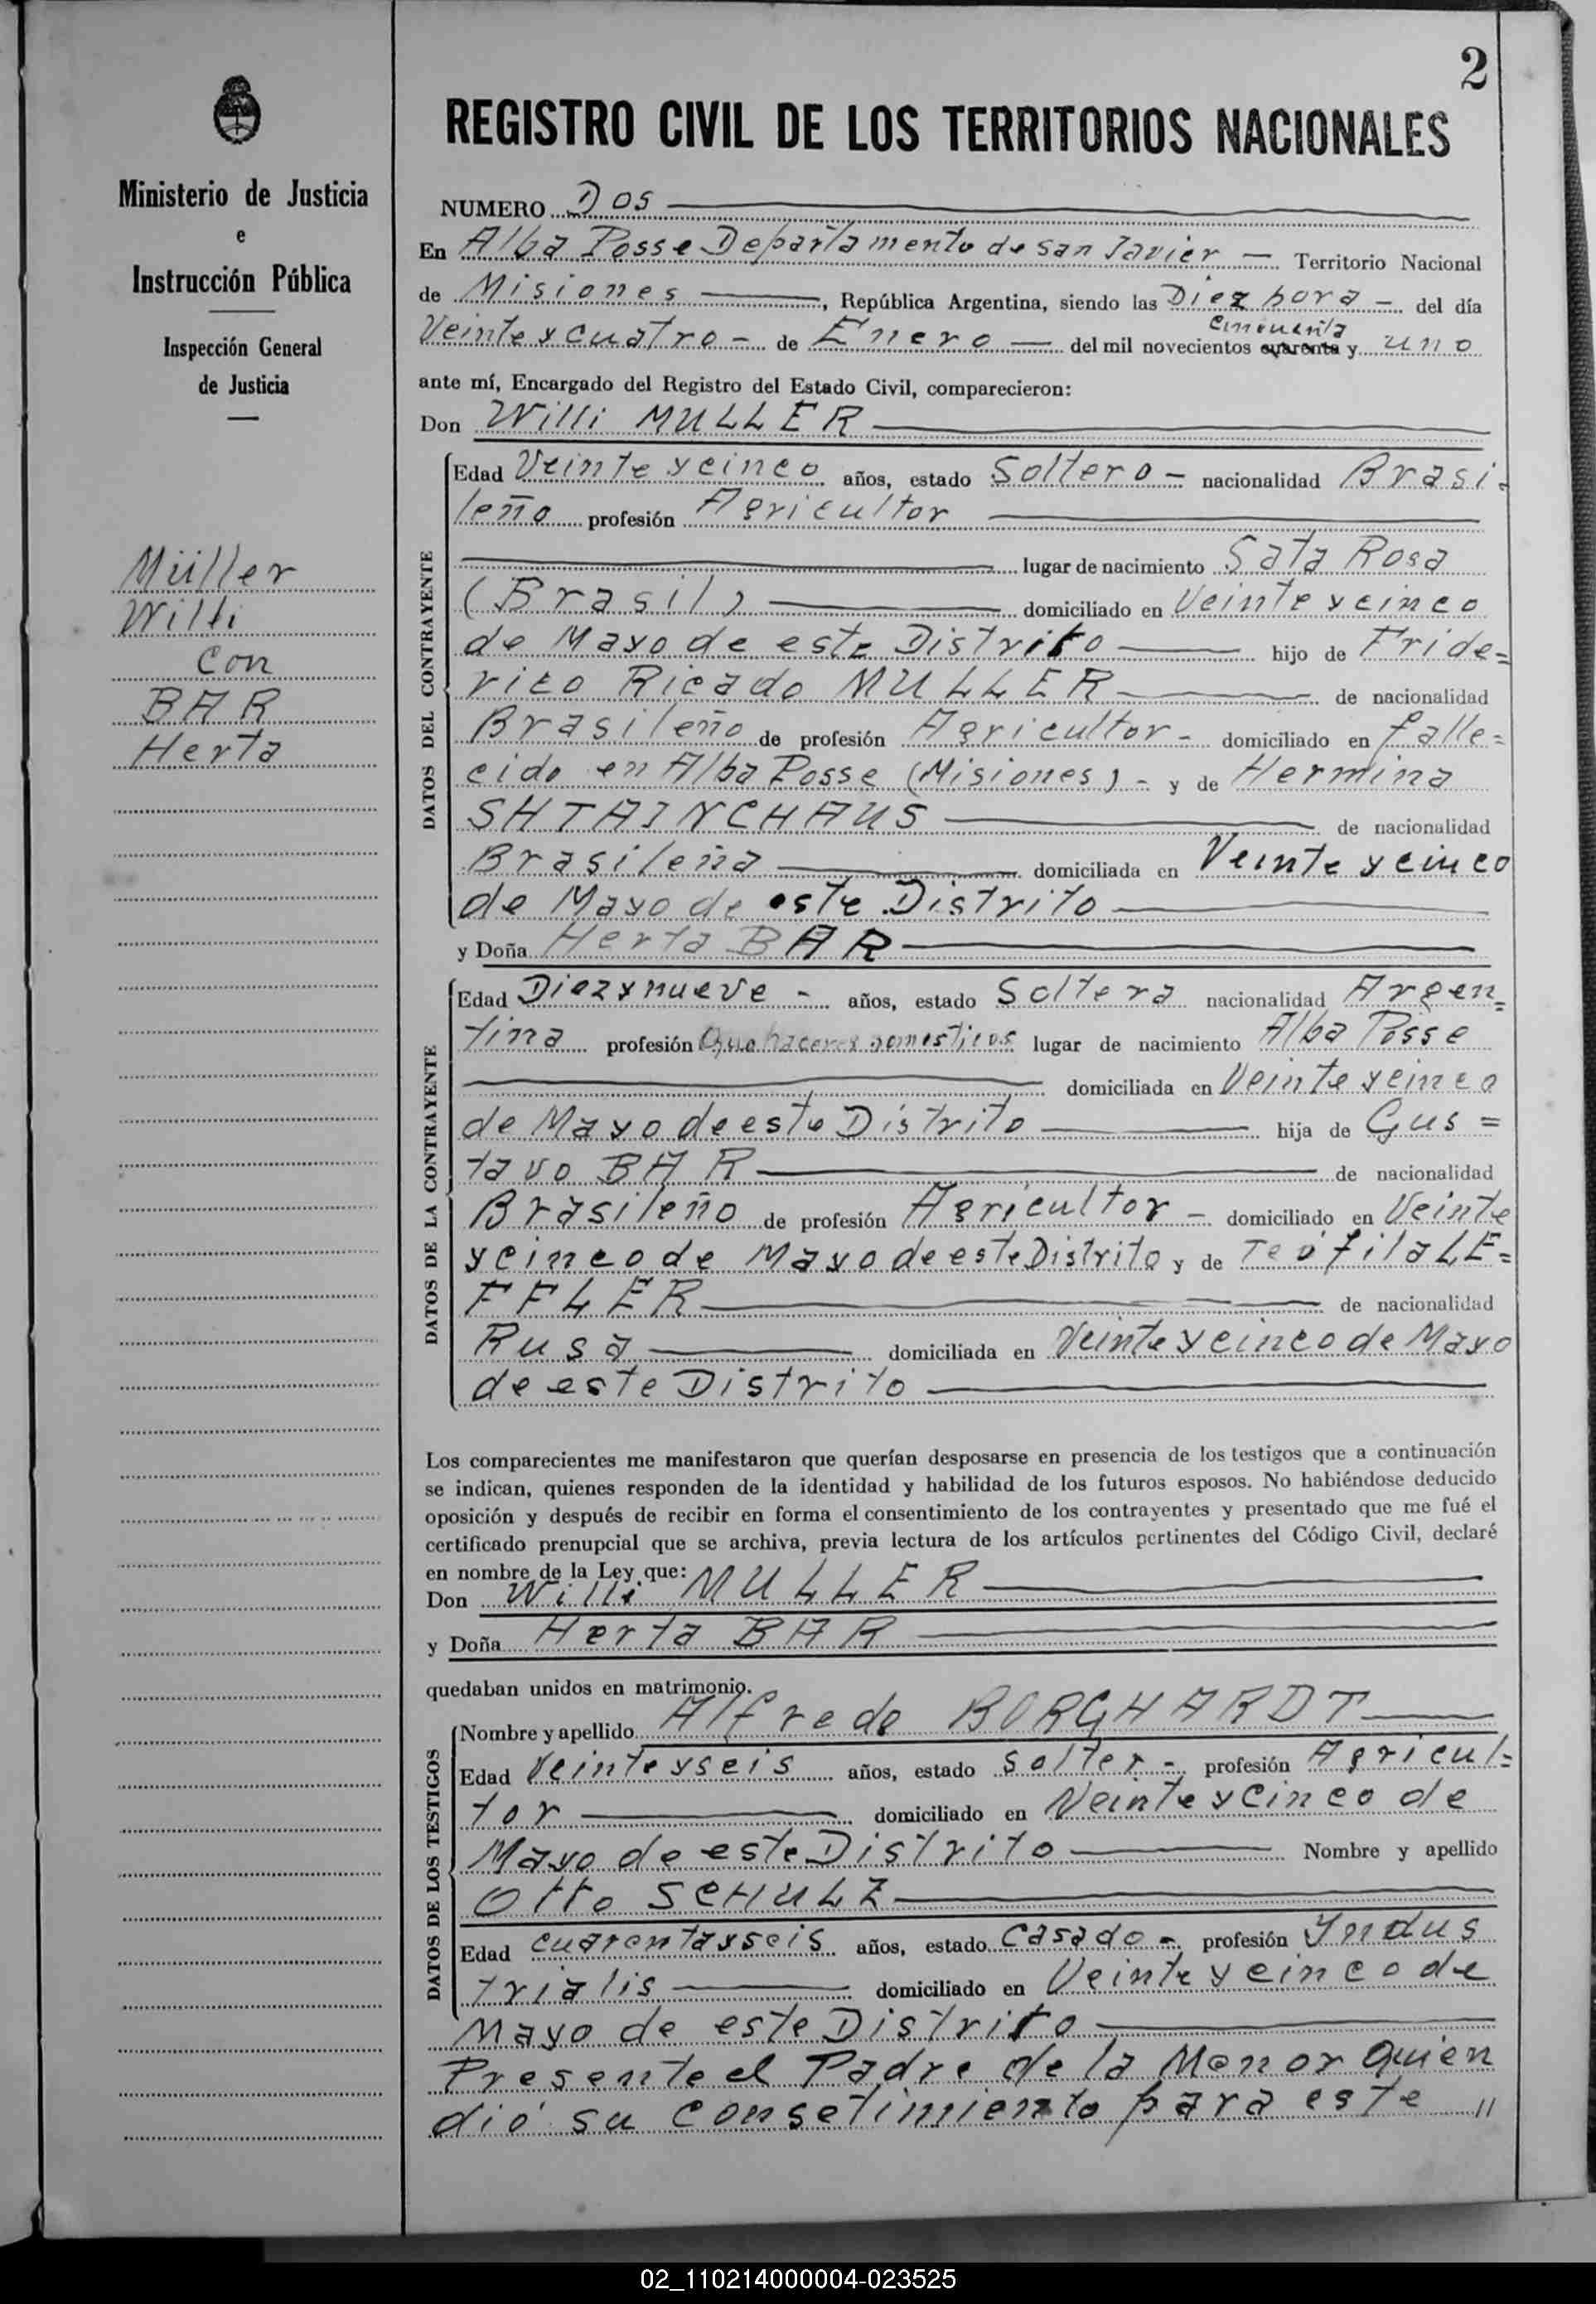 2
REGISTRO CIVIL DE LOS TERRITORIOS NACIONALES
Ministerio de Justicia
e
Instrucción Pública
Inspección General
de Justicia
Müller
Willi
con
BAR
Herta
NUMERO Dos
En Alba Posse Departamento de san Javier - Territorio Nacional
de Misiones, República Argentina, siendo las Diez hora - del día
cincuenta
Veinte y cuatro - de Enero - del mil novecientos cuarenta y uno
ante mí, Encargado del Registro del Estado Civil, comparecieron:
Don Willi MULLER
DATOS DEL CONTRAYENTE
Edad Veinte y cinco años, estado Soltero - nacionalidad Brasi-
leño profesión Agricultor
lugar de nacimiento Sata Rosa
(Brasil) domiciliado en Veinte y cinco
de Mayo de este Distrito hijo de Fride=
rico Ricado MULLER de nacionalidad
Brasileño de profesión Agricultor - domiciliado en falle=
cido en Alba Posse (Misiones) - y de Hermina
SHTAINCHAUS de nacionalidad
Brasileña domiciliada en Veinte y cinco
de Mayo de este Distrito
y Doña Herta BAR
DATOS DE LA CONTRAYENTE
Edad Diez y nueve - años, estado Soltera nacionalidad Argen=
tina profesión Quehaceres domesticos lugar de nacimiento Alba Posse
domiciliada en Veinte y cinco
de Mayo de este Distrito hija de Gus=
tavo BAR de nacionalidad
Brasileño de profesión Agricultor - domiciliado en Veinte
y cinco de Mayo de este Distrito y de Teófila LE=
FFLER de nacionalidad
Rusa domiciliada en Veinte y cinco de Mayo
de este Distrito
Los comparecientes me manifestaron que querían desposarse en presencia de los testigos que a continuación
se indican, quienes responden de la identidad y habilidad de los futuros esposos. No habiéndose deducido
oposición y después de recibir en forma el consentimiento de los contrayentes y presentado que me fué el
certificado prenupcial que se archiva, previa lectura de los artículos pertinentes del Código Civil, declaré
en nombre de la Ley que:
Don Willi MULLER
y Doña Herta BAR
quedaban unidos en matrimonio.
DATOS DE LOS TESTIGOS
Nombre y apellido Alfredo BORGHARDT
Edad Veinte y seis años, estado solter - profesión Agricul=
tor domiciliado en Veinte y cinco de
Mayo de este Distrito Nombre y apellido
Otto SCHULZ
Edad cuarenta y seis años, estado Casado - profesión Yndus
trialis domiciliado en Veinte y cinco de
Mayo de este Distrito
Presente el Padre de la Menor quien
dió su consetimiento para este //
02_110214000004-023525